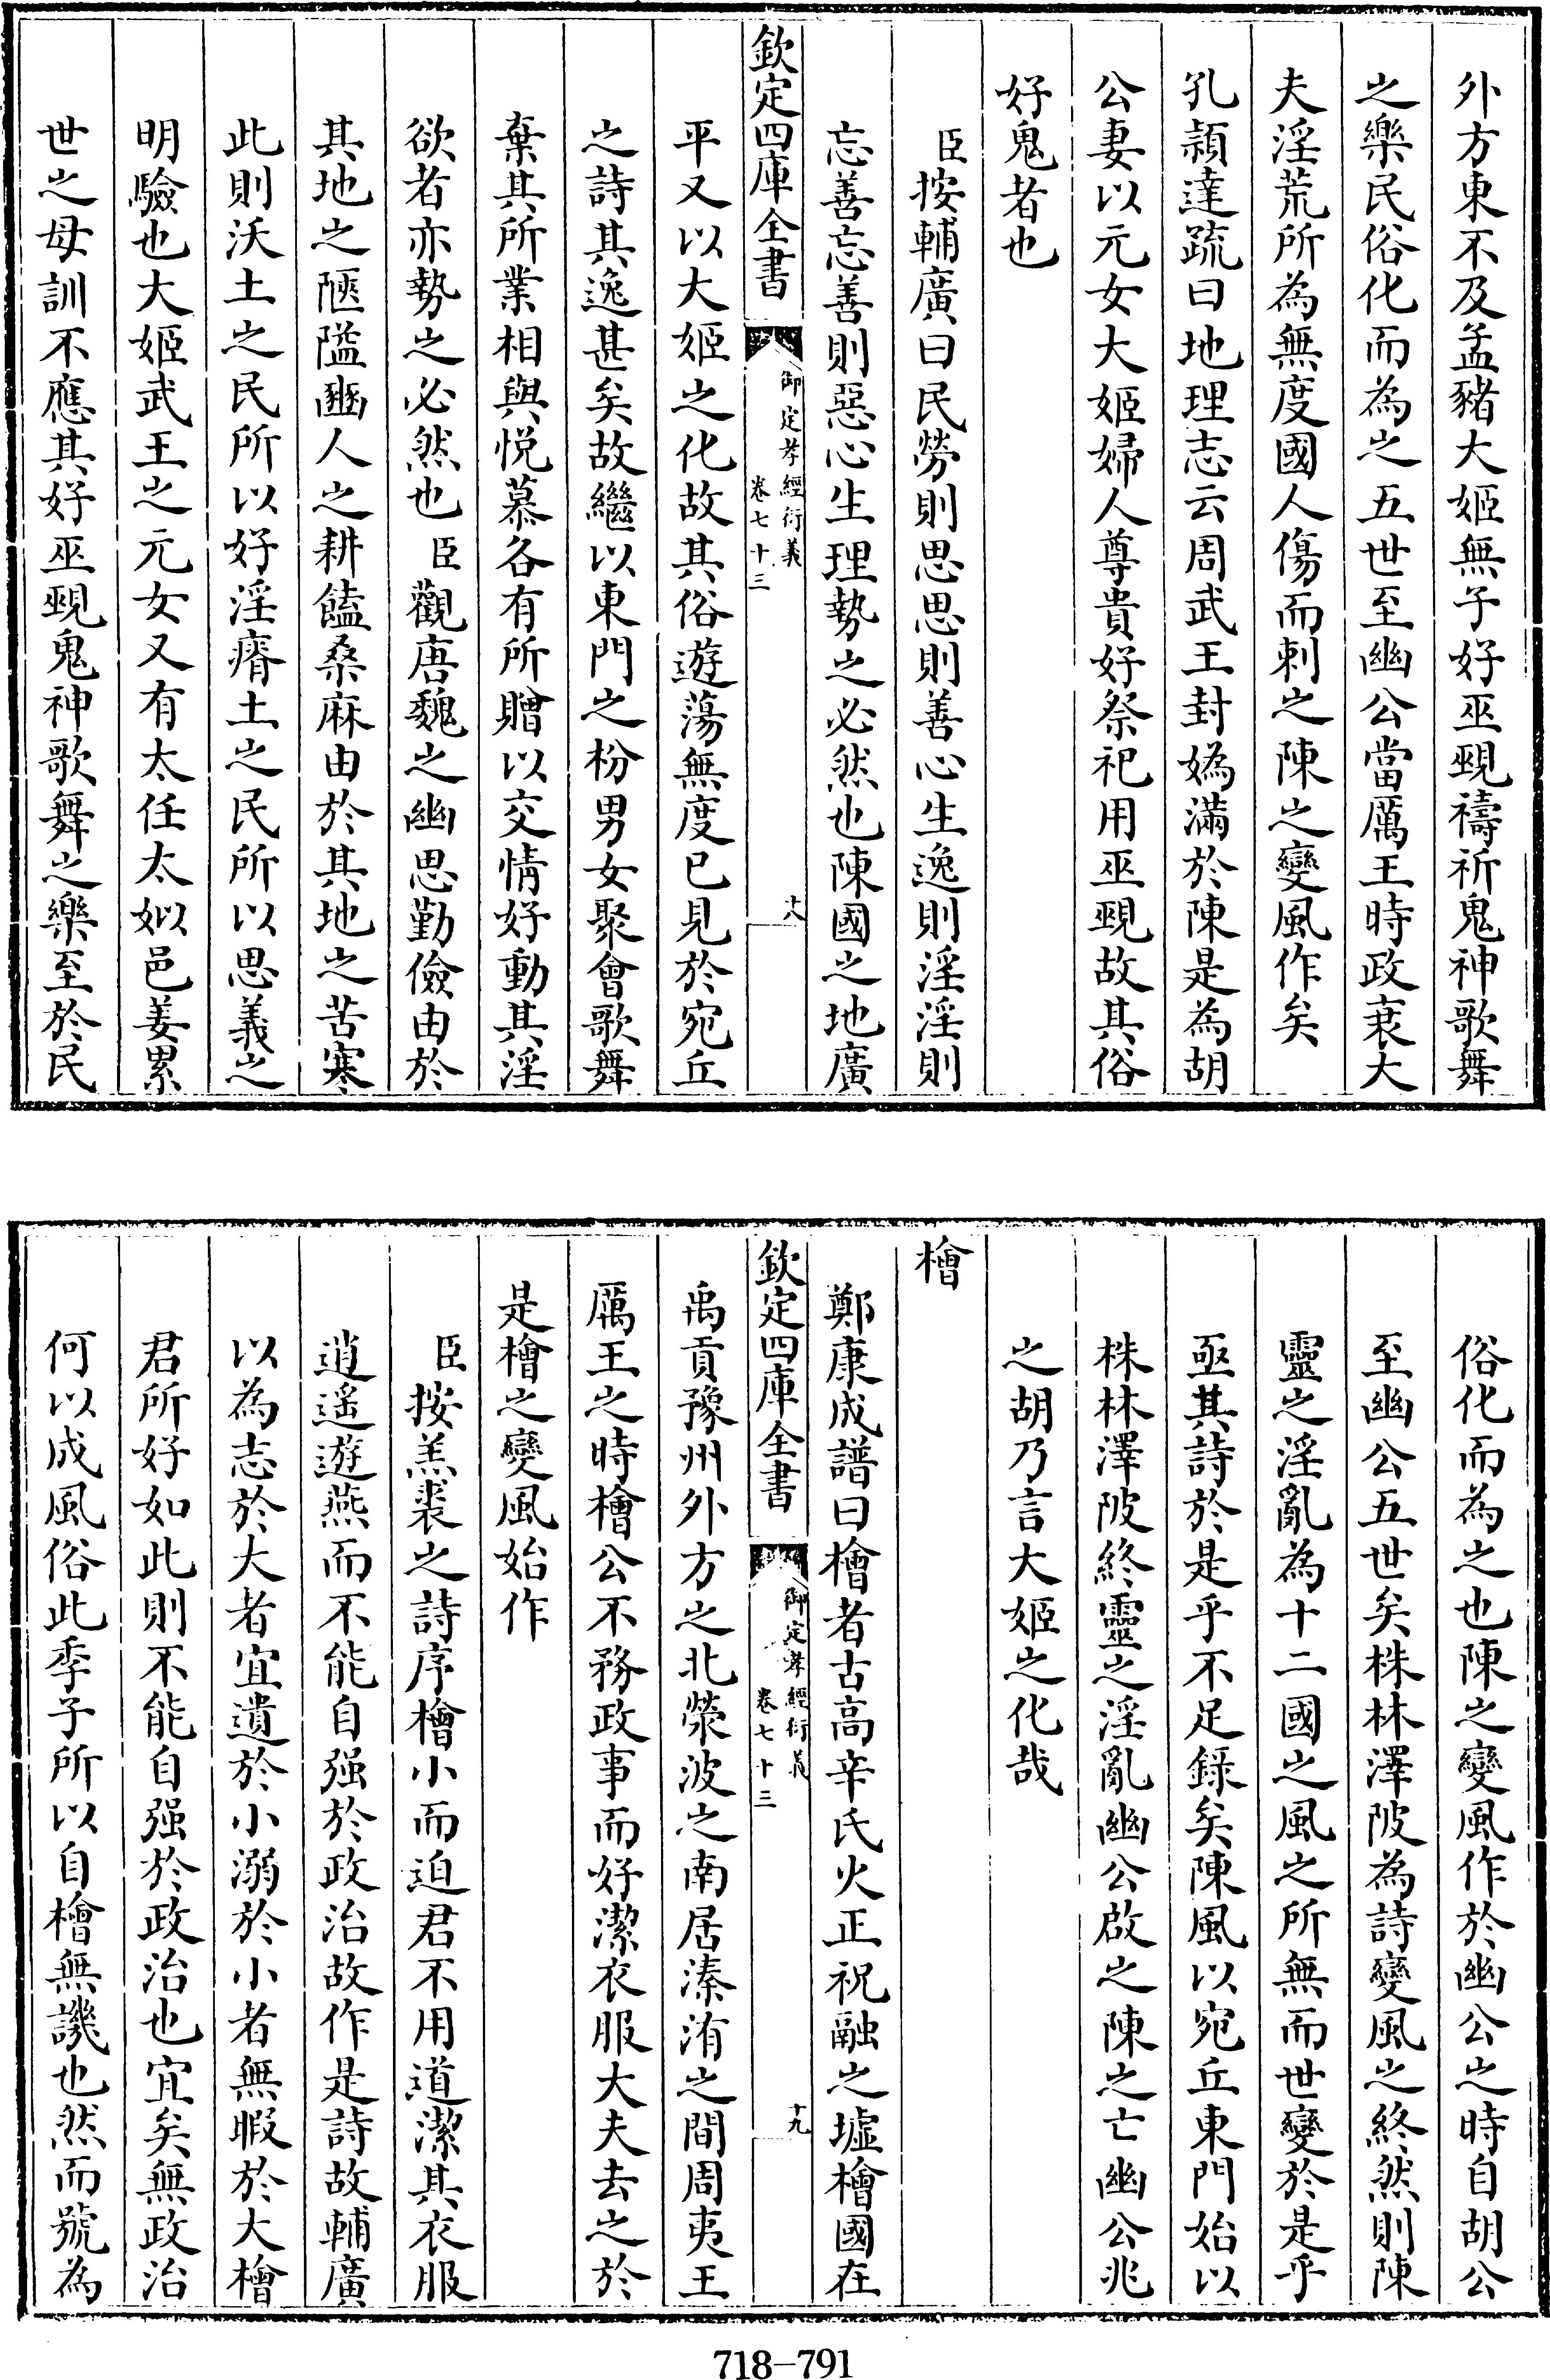 外方東不及孟豬大姬無子好巫覡禱祈鬼神歌舞
之樂民俗化而為之五世至幽公當厲王時政衰大
夫淫荒所為無度國人傷而刺之陳之變風作矣
孔頴達疏曰地理志云周武王封媯滿於陳是為胡
公妻以元女大姬婦人尊貴好祭祀用巫覡故其俗
好鬼者也
臣按輔廣曰民勞則思思則善心生逸則淫淫則
忘善忘善則惡心生理勢之必然也陳國之地廣
欽定四庫全書
御定孝經衍義
卷七十三
十八
平又以大姬之化故其俗遊蕩無度已見於宛丘
之詩其逸甚矣故繼以東門之枌男女聚會歌舞
棄其所業相與悦慕各有所贈以交情好動其淫
欲者亦勢之必然也臣觀唐魏之幽思勤儉由於
其地之陋隘豳人之耕饁桑麻由於其地之苦寒
此則沃土之民所以好淫瘠土之民所以思義之
明驗也大姬武王之元女又有太任太姒邑姜累
世之母訓不應其好巫覡鬼神歌舞之樂至於民
俗化而為之也陳之變風作於幽公之時自胡公
至幽公五世矣株林澤陂為詩變風之終然則陳
靈之淫亂為十二國之風之所無而世變於是乎
亟其詩於是乎不足錄矣陳風以宛丘東門始以
株林澤陂終靈之淫亂幽公啟之陳之亡幽公兆
之胡乃言大姬之化哉
檜
鄭康成譜曰檜者古高辛氏火正祝融之墟檜國在
欽定四庫全書
御定孝經衍義
卷七十三
十九
禹貢豫州外方之北滎波之南居溱洧之間周夷王
厲王之時檜公不務政事而好潔衣服大夫去之於
是檜之變風始作
臣按羔裘之詩序檜小而迫君不用道潔其衣服
逍遙遊燕而不能自强於政治故作是詩故輔廣
以為志於大者宜遺於小溺於小者無暇於大檜
君所好如此則不能自强於政治也宜矣無政治
何以成風俗此季子所以自檜無譏也然而虢為
718-791